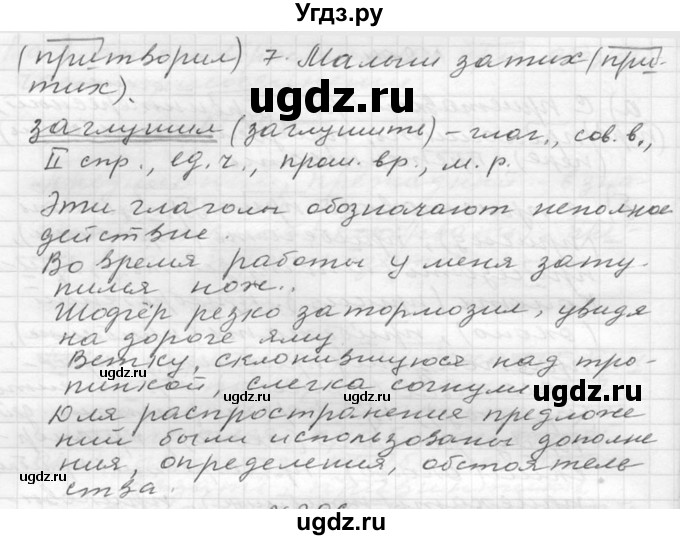 Угдз.ру
(притворил) 7. Малыш затих (при-
тих).
ugdz.ru
заглушил (заглушить) – глаг., сов. в.,
II спр., ед. ч., прош. вр., м. р.
Эти глаголы обозначают неполное
действие.
ugdz.ru
Во время работы у меня зату-
пился нож..
Шофёр резко затормозил, увидя
на дороге яму
ugdz.ru
Ветку, склонившуюся над тро-
пинкой, слегка согнули
ugdz.ru ugdz.ru
Для распространения предложе
ний были использованы дополне
ния, определения, обстоятель
ства.
ugdz.ru
ugdz.ru